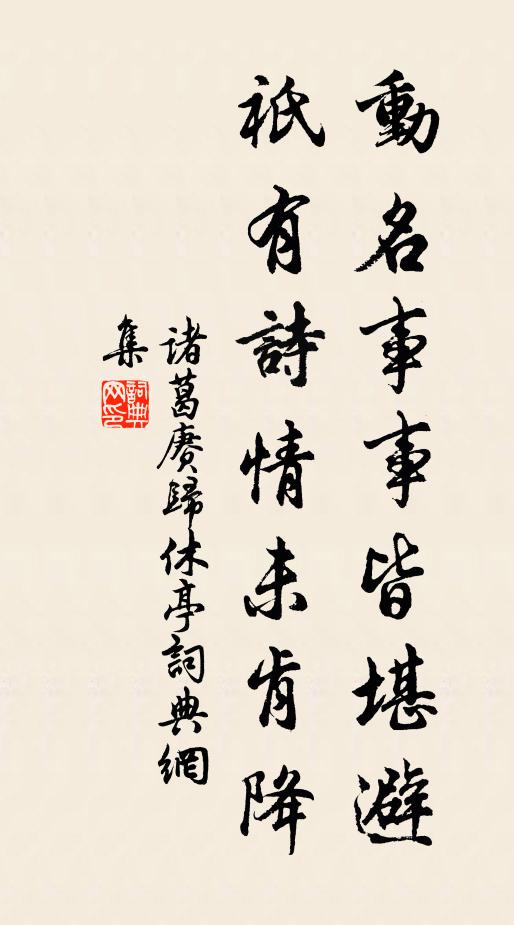 動名事事皆堪避
祇有詩情未肯降
諸葛賡歸休亭詞典網
集
詞典網印